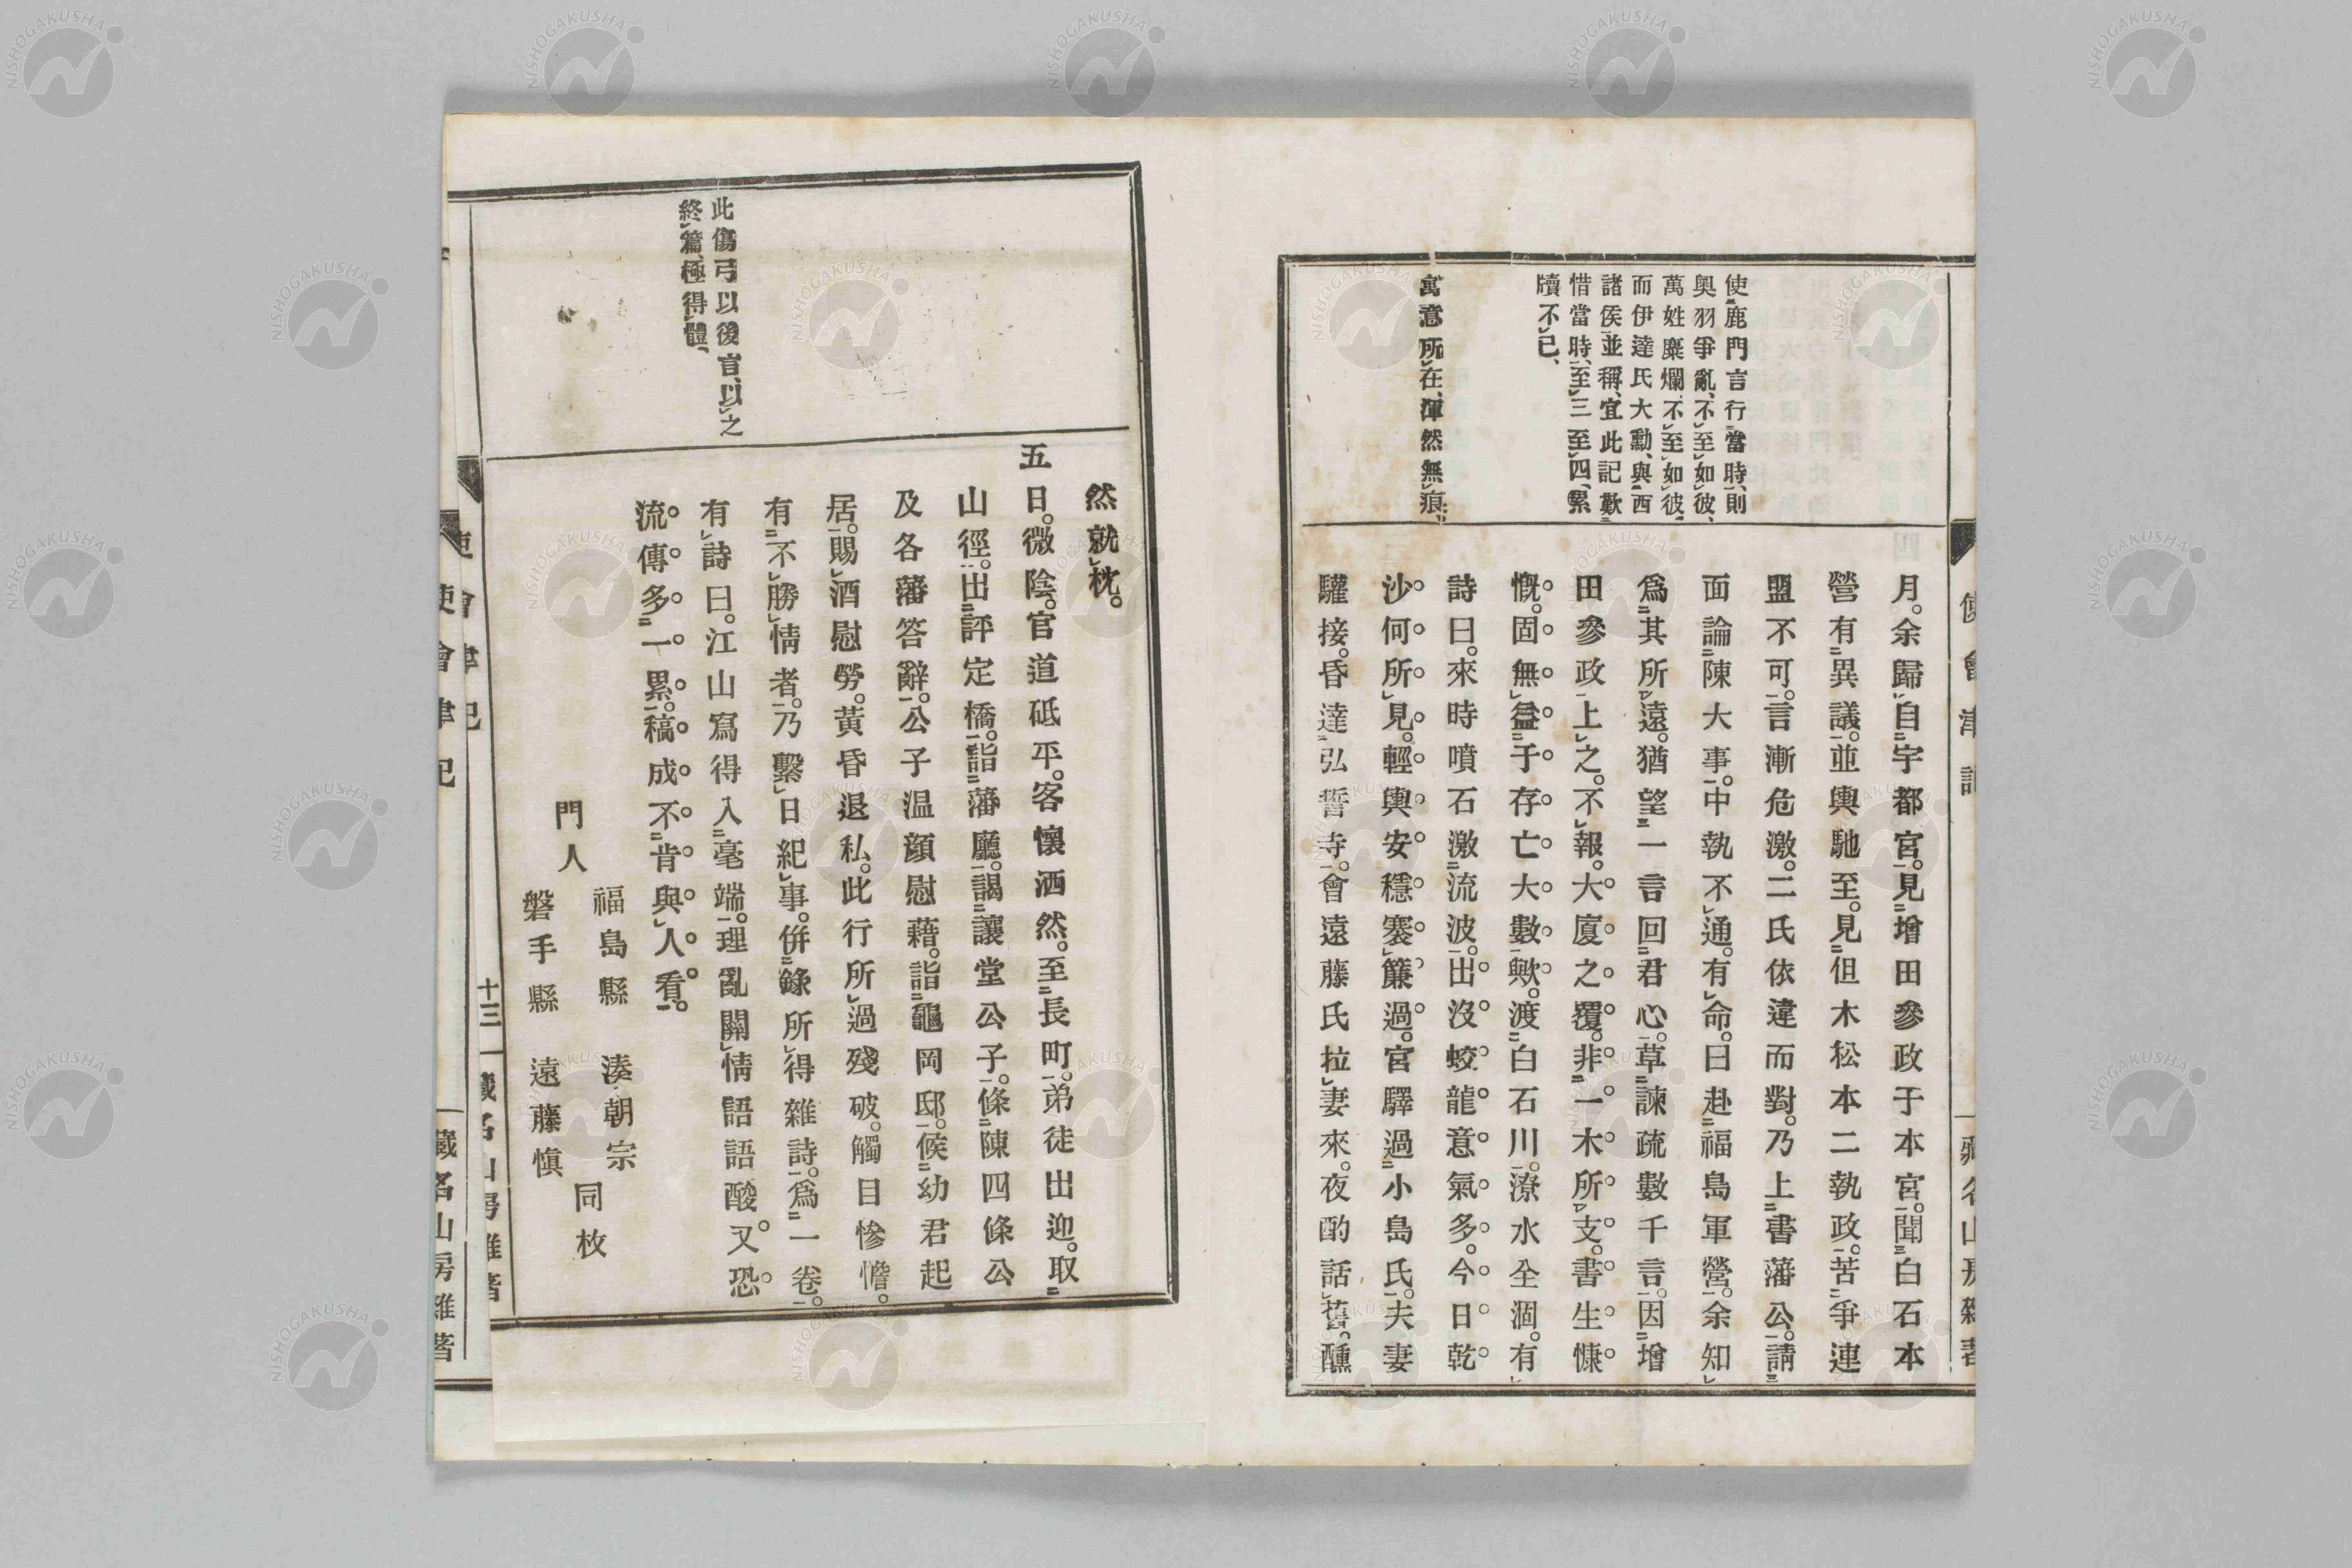 使會津記
藏名山房雜著
使鹿門言行當時、則
奧羽爭亂、不至如彼、
萬姓糜爛、不至如彼、
而伊達氏大勳、與西
諸侯並稱、宜此記歎
惜當時、至三至四、累
牘不已、
寓意所在、渾然無痕、
月。余歸自宇都宮。見增田參政于本宮。聞白石本
營有異議。並輿馳至。見但木松本二執政。苦爭連
盟不可。言漸危激。二氏依違而對。乃上書藩公。請
面論陳大事。中執不通。有命。日赴福島軍營。余知
爲其所遠。猶望一言回君心。草諫疏數千言。因增
田參政上之。不報。大廈之覆。非一木所支。書生慷
慨。固無益于存亡大數歟。渡白石川。潦水全涸。有
詩曰。來時噴石激流波。出沒蛟龍意氣多。今日乾
沙何所見。輕輿安穩褰簾過。宮驛過小島氏。夫妻
驩接。昏達弘誓寺。會遠藤氏拉妻來。夜酌話舊。醺
此傷弓以後言、以之
終篇、極得體、
然就枕。
五日。微陰。官道砥平。客懷洒然。至長町。弟徒出迎。取
山徑。出評定橋。詣藩廳。謁讓堂公子。條陳四條公
及各藩答辭。公子温顏慰藉。詣龜岡邸。候幼君起
居。賜酒慰勞。黃昏退私。此行所過殘破。觸目慘憺。
有不勝情者。乃繫日紀事。併錄所得雜詩。爲一卷。
有詩曰。江山寫得入毫端。理亂關情語語酸又恐
流傳多一累。稿成不肯與人看。
門人
福島縣 湊朝宗
磐手縣 遠藤愼
同校
十三
藏名山房雜著
使會津記
藏名山房雜著
NISHOGAKUSHA